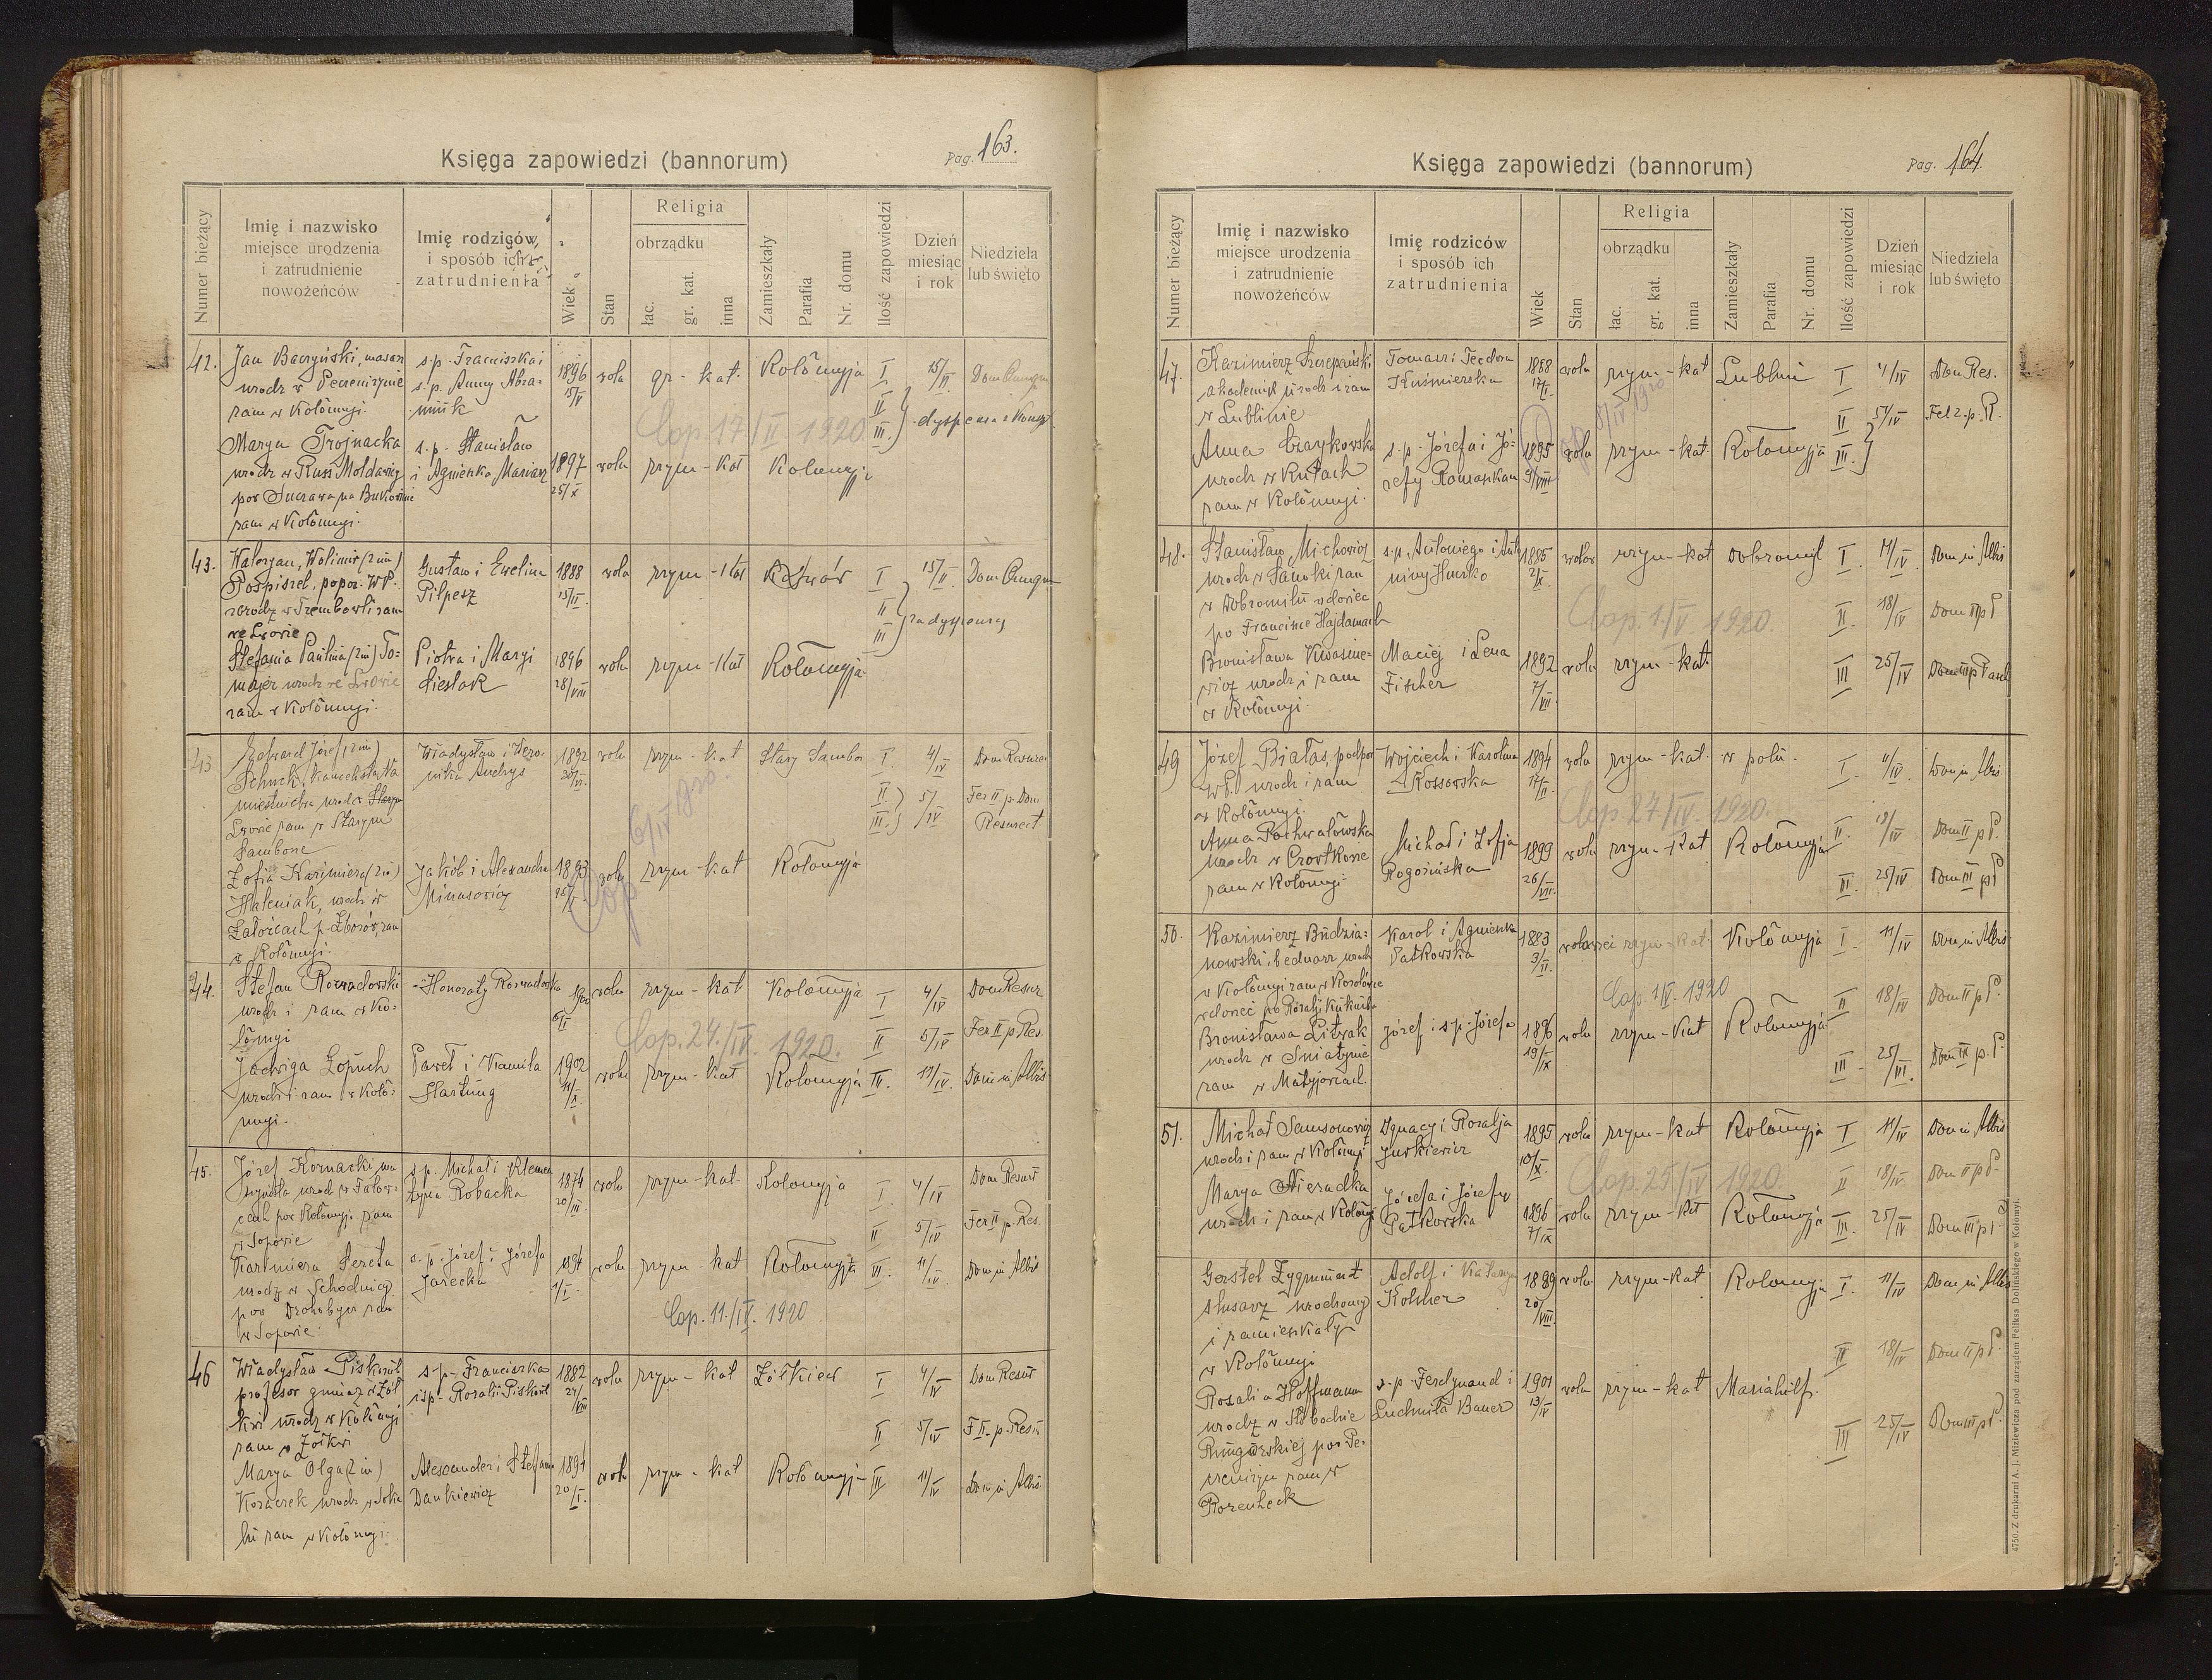 Księga zapowiedzi (bannorum)
Pag. 163.
Numer bieżący
Imię i nazwisko
miejsce urodzenia
i zatrudnienie
nowożeńców
Imię rodziców,
i sposób ich
zatrudnienia
Wiek
Stan
Religia
obrządku
łac.
gr. kat.
inna
Zamieszkały
Parafia
Nr. domu
Ilość zapowiedzi
Dzień
miesiąc
i rok
Niedziela
lub święto
42. Jan Baczyński, masarz s.p. Franciszka i 1896 wolu gr-kat. Kołómyja I 15/II
urodz w Peczeniżynie s.p. Anny Abra- 15/V
zam w Kołómyji. miuk II
Cop. 17/II 1920. III dyspensa z Konsyst.
Marya Trojnacka s.p. Stanisław
urodz w Russ Mołdawicy i Agnieszka 1897 wolu rzym-kat Kołomyji
pow Suczawa na Bukowinie 25/X
zam w Kołómyji.
43. Waleryan, Wolimir (2 im) Gustaw i Ewelina 1888 wolu rzym-kat Lwów I 15/II
Pospiszel, popor. WP. Pilpesz 15/II. II
urodz w Trembowli zam III za dyspensą
we Lwowie
Stefania Paulina (2 im) To- Piotra i Maryi 1896 wolu rzym-kat Kołomyja
majer urodz we Lwowie Cieslak 28/VIII
zam w Kołómyji.
43 Edward Józef (2 im) Władysław i Wero- 1892 wolu rzym-kat Stary Sambor I. 4/IV Dom Resurec
kancelista Na nika Andrys
miestnictwa urodz Stary II 5/IV Fer II p. Dom
Lwowie zam w Starym III. Resurect.
Samborze Cop 6/IV 1920.
Zofia Kazimiera (2 im) Jakób i Alexandra 1893 wolu rzym-kat Kołomyja
Haleniak, urodz w Minasowicz
Załoźcach p. Zborów, zam
w Kołómyji.
44. Stefan Rozwadowski Honoraty Rozwadowska 1900 wolu rzym-kat Kołomyja I 4/IV Dom Resur
urodz i zam w Ko- 6/II
łómyji Cop. 24./IV. 1920. II 5/IV Fer II p. Res.
Jadwiga Łopuch Paweł i Kamila 1902 wolu rzym-kat Kołomyja III. 11/IV. Dom in Albis
urodz i zam w Koło- Hartung 11/X.
myji.
45. Józef Kornacki s.p. Michał i Klemen 1874 wolu rzym-kat. Kołomyja I. 4/IV Dom Resurr
Robacka 20/III.
cach pow Kołomyja zam II 5/IV Fer II p. Res.
w Sopowie
Kazimiera Sereta s.p. Józef i Józefa 1894 wolu rzym-kat Kołomyja III. 11/IV. Dom in Albis
urodz w Schodnicy Jarecka 1/I.
pow Drohobycz zam Cop. 11./IV. 1920
w Sopowie.
46 Władysław Piskozub s.p. Franciszka 1882 wolu rzym-kat Żółkiew I 4/IV Dom Resur
profesor gimnaz w Żół i sp. Rosalii Piskozub 27/VIII
kwi urodz w Kołómyji II 5/IV F II. p. Resu
zam w Żółkwi
Marya Olga (2 im) Alexander i Stefania 1894 wolu rzym-kat Kołomyja III 11/IV Dom in Albis
Kozaczek urodz w Soka Dankiewicz 20/I.
lu zam w Kołómyji.
Księga zapowiedzi (bannorum)
Pag. 164.
Numer bieżący
Imię i nazwisko
miejsce urodzenia
i zatrudnienie
nowożeńców
Imię rodziców
i sposób ich
zatrudnienia
Wiek
Stan
Religia
obrządku
łac.
gr. kat.
inna
Zamieszkały
Parafia
Nr. domu
Ilość zapowiedzi
Dzień
miesiąc
i rok
Niedziela
lub święto
47. Kazimierz Szczepański Tomasz i Teodora 1888 wolu rzym-kat Lublin I 4/IV Dom Res.
akademik urodz i zam Kuśmierska 17/I.
w Lublinie II 5/IV Fel 2. p. R.
Anna Czaykowska s.p. Józefa i Jó- 1895 wolu rzym-kat. Kołomyja III.
urodz w Kutach zefy Romaszkan 4/VIII
zam w Kołómyji.
48. Stanisław Michowicz s.p. Antoniego i Anto 1885 wdow rzym-kat Dobromyl I 11/IV. Dom in Albis
urodz w Sanoki zam niny Hurko 2/X.
w Dobromilu wdowiec Cop. 1./V 1920. II. 18/IV Dom II p P
po Francisce Hajdamach
Bronisława Kwaśnie- Maciej i Lena 1892 wolu rzym-kat. III 25/IV Dom III p Pasch
wicz urodz i zam Fischer 7/VII.
w Kołómyji.
49 Józef Białas, podpor Wojciech i Karolina 1894 wolu rzym-kat. w polu. I. 11/IV. Dom in Albis
W.P. urodz i zam Kossowska 17/II.
w Kołómyji. Cop. 27/IV. 1920.
Anna Pochwałowska Michał i Zofja 1899 wolu rzym-kat Kołómyja II. 18/IV Dom II p P.
urodz w Czortkowie Rogozińska 26/VII.
zam w Kołómyji. III. 25/IV Dom III p P
50. Kazimierz Budzia- Karol i Agnieszka 1883 rzym-kat. Kołómyja I. 11/IV Dom in Albis
nowski, bednarz urodz Patkowska 3/II.
w Kołómyji zam w Korolówce Cop 1/V. 1920 II 18/IV Dom II p P.
wdowiec po Rozalji
Bronisława Litwak Józef i s.p. Józefa 1896 wolu rzym-kat Kołomyja
urodz w Śniatynie 19/IX
zam w Matyjowcach. III. 25/III. Dom III p. P.
51. Michał Samsonowicz Ignacy i Rozalja 1895 wolu rzym-kat Kołomyja I 11/IV Dom in Albis
urodz i zam w Kołómyji Jurkiewicz 10/X.
Cop. 25/IV 1920. II 18/IV. Dom II p P.
Marya Nieradka Józefa i Józefy 1896 wolu rzym-kat Kołomyja III. 25/IV Dom III p P
urodz i zam w Kołómyji Patkowska 7/IX
Gerstel Zygmunt Adolf i Katarzyna 1889 wolu rzym-kat Kołomyja I. 11/IV Dom in Albis
ślusarz urodzony Kolmer 20/VIII.
i zamieszkały
w Kołómyji II 18/IV Dom II p P.
Rosalia Hoffmann s.p. Ferdynand i 1901 wolu rzym-kat Mariahilf.
urodz w Słobodzie Ludmiła Bauer 13/IV
Rungurskiej pow Pe- III 25/IV Dom III p P.
czeniżyn zam w
Rozenheck
4750. Z drukarni A. J. Miziewicza pod zarządem Feliksa Dolińskiego w Kołomyi.